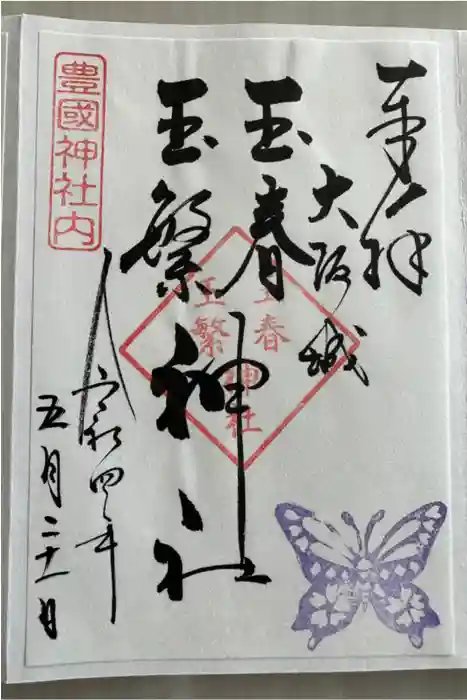 奉拝
大阪城
玉春
玉繁神社
玉春
玉繁神社
豊國神社内
令和四年
五月二十一日